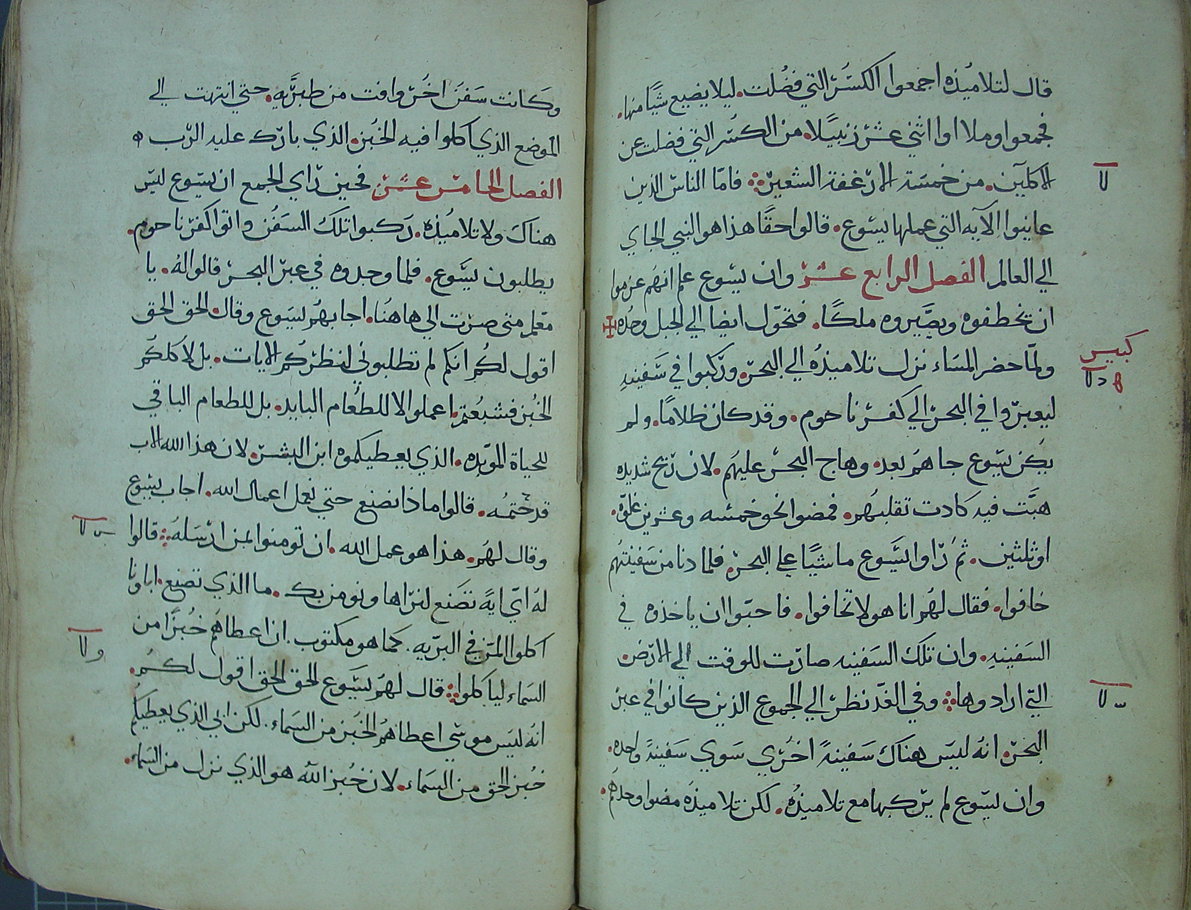 قال لتلاميذه اجمعوا الكسر التي فضلت. ليلا يضيع شيا منها.
فجمعوا وملا اوا اثني عشر زنبيلا. من الكسر التي فضلت عن
الاكلين. من خمسة الارغفة الشعير فاما الناس الذين
عاينوا الآيه التي عملها يسوع. قالوا حقا هذا هو النبي الجاي
الي العالم. الفصل الرابع عشر وان يسوع علم انهم عزموا
ان يخطفوه ويصيروه ملكا. فتحول ايضا الي الجبل وحده
ولما حضر المساء نزل تلاميذه الي البحر. وركبوا في سفينه
ليعبروا في البحر الي كفرناحوم. وقد كان ظلاما. ولم
يكن يسوع جاهم بعد. وهاج البحر عليهم. لان ريح شديده
هبت فيه كادت تقلبهم. فمضوا نحو خمسه وعشرين غلوة.
او ثلثين. ثم راوا يسوع ماشيا علي البحر. فلما دنا من سفينتهم
خافوا. فقال لهم انا هو لا تخافوا. فاحبوا ان ياخذوه في
السفينه. وان تلك السفينه صارت للوقت الي الارض.
التي ارادوها وفي الغد نظر الي الجموع الذين كانوا في عبر
البحر. انه ليس هناك سفينة اخري سوي سفينة واحده.
وان يسوع لم يركبها مع تلاميذه. لكن تلاميذه مضوا وحدهم.
كبير
وكانت سفن اخر وافت من طبريه. حتي انتهت الي
الموضع الذي اكلوا فيه الخبز. الذي بارك عليه الرب
الفصل الخامس عشر فحين راي الجمع ان يسوع ليس
هناك ولا تلاميذه. ركبوا تلك السفن واتوا كفرناحوم.
يطلبون يسوع. فلما وجدوه في عبر البحر. قالوا له. يا
معلم متي صرت الي هاهنا. اجابهم يسوع وقال. الحق الحق
اقول لكم انكم لم تطلبوني لنظركم الايات. بل لاكلكم
الخبز فشبعتم. اعملوا لا للطعام البايد. بل للطعام الباقي
للحياة الموبده. الذي يعطيكموه ابن البشر. لان هذا الله الاب
قد ختمه. قالوا ماذا نصنع حتي نعمل اعمال الله. اجاب يسوع
وقال لهم. هذا هو عمل الله. ان تومنوا بمن ارسله قالوا
له اي اية تصنع لنراها ونومن بك. ما الذي تصنع. اباونا
اكلوا المن في البريه. كما هو مكتوب. ان اعطاهم خبزا من
السماء لياكلوا قال لهم يسوع الحق الحق اقول لكم.
انه ليس موسي اعطاهم الخبز من السماء. لكن ابي الذي يعطيكم
خبز الحق من السماء. لان خبز الله هو الذي نزل من السماء.